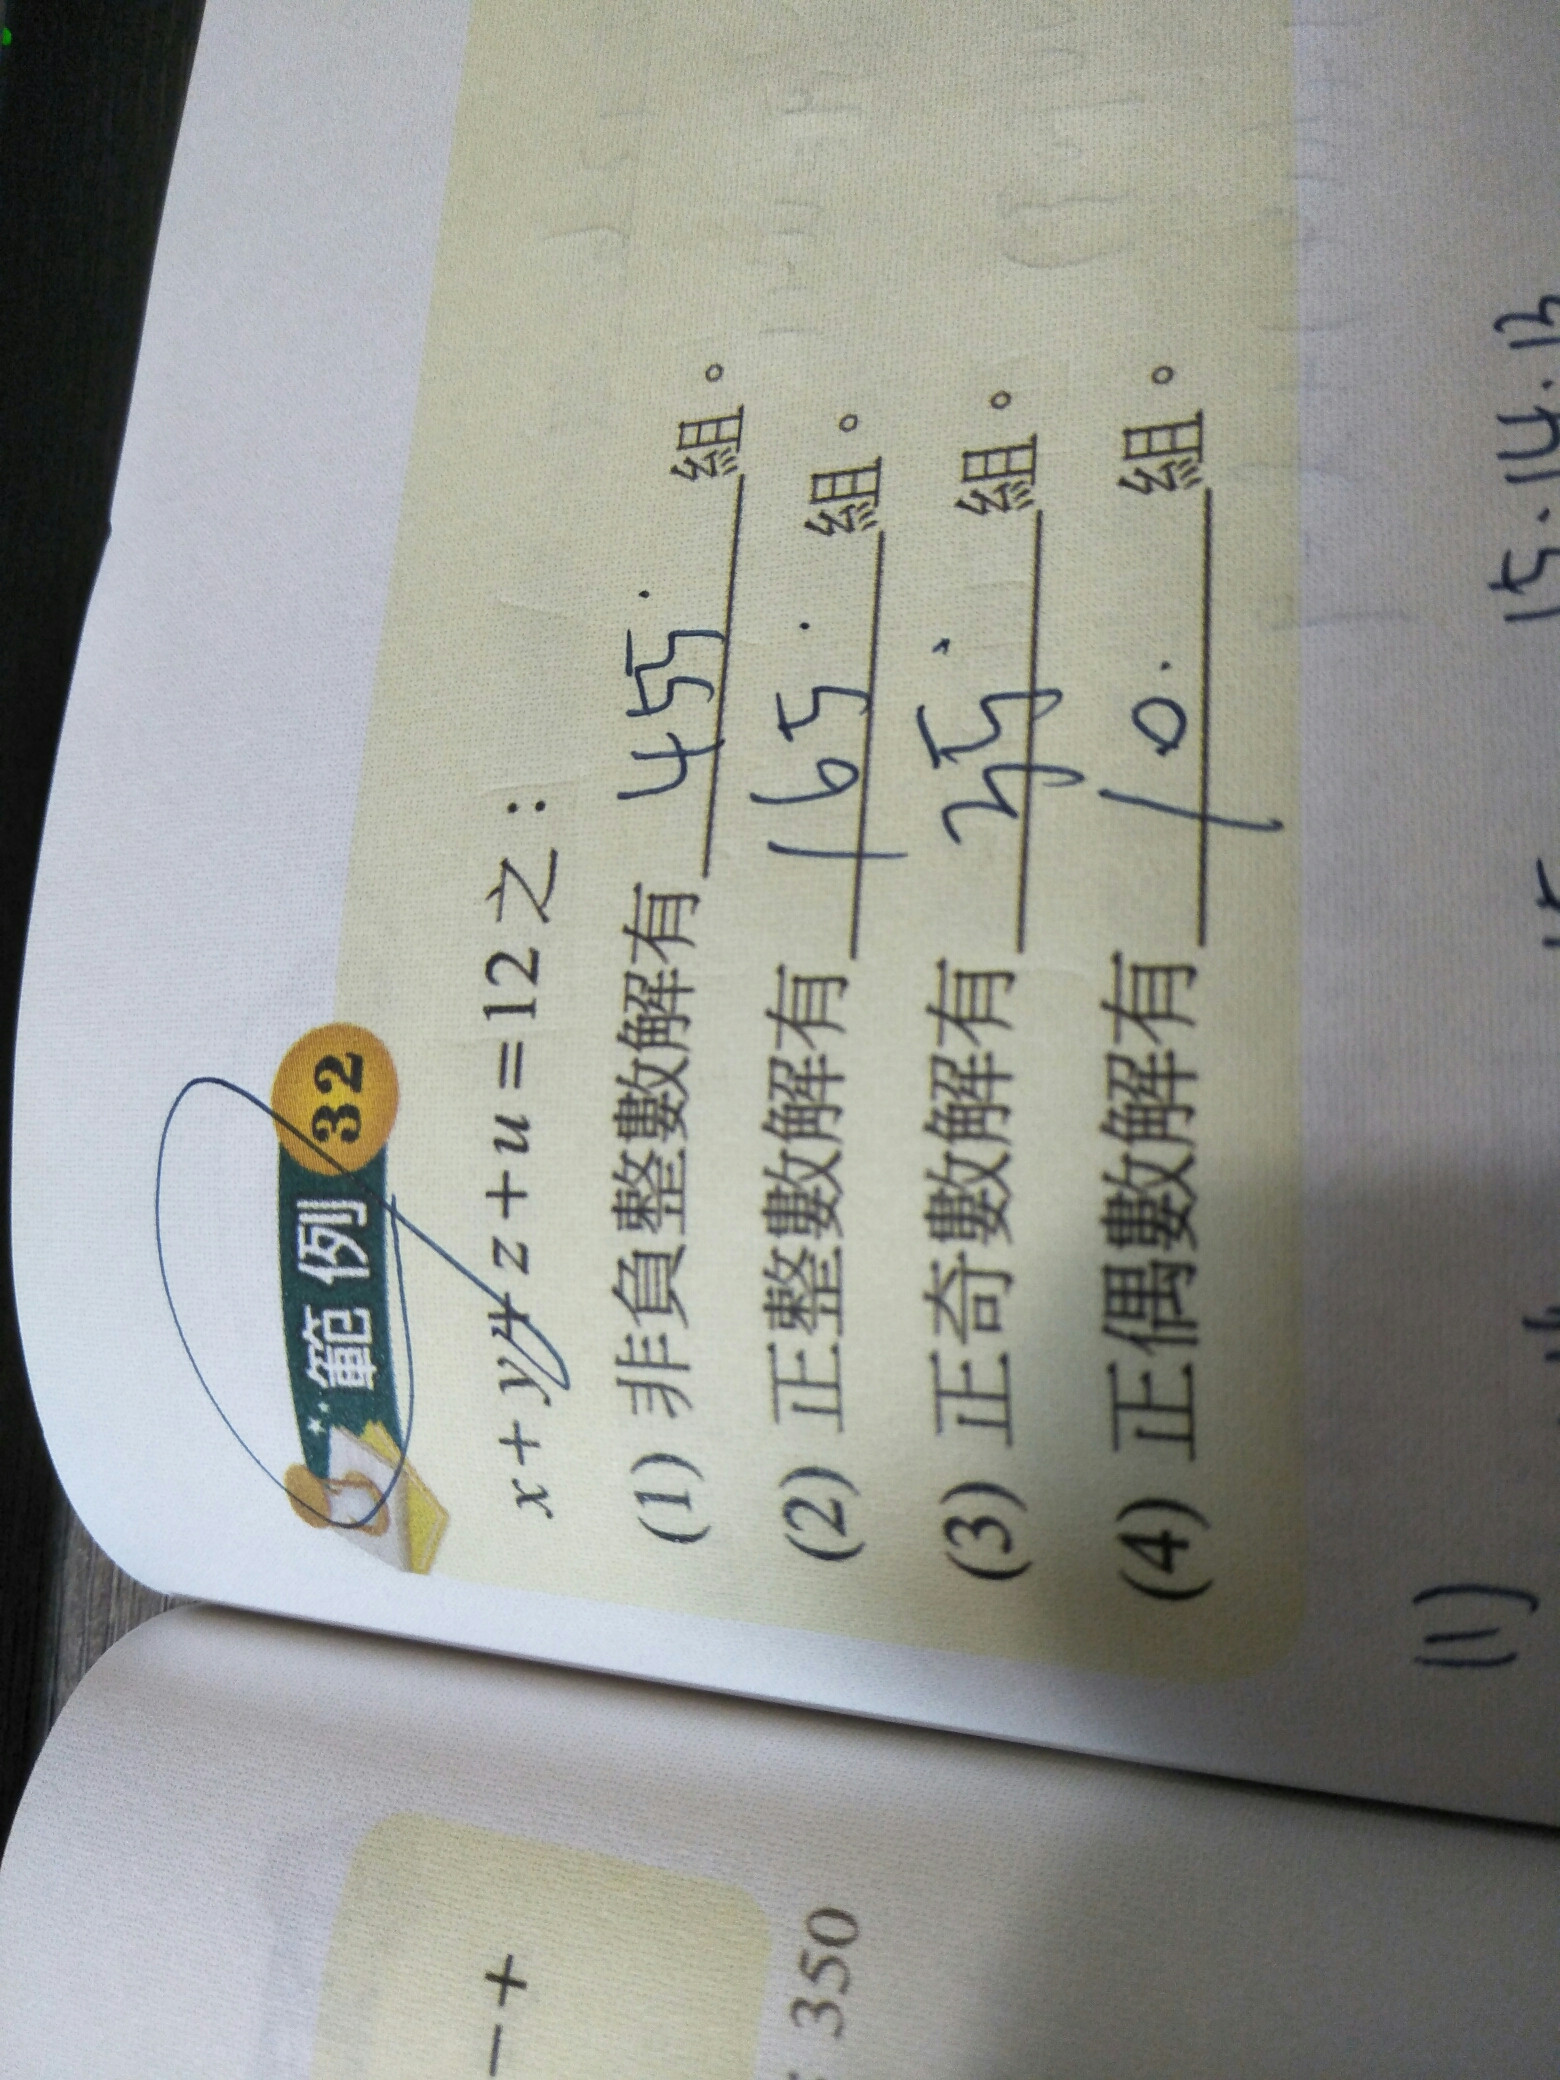 範例 32
x+y+z+u=12之：
(1) 非負整數解有 455. 組。
(2) 正整數解有 165. 組。
(3) 正奇數解有 35. 組。
(4) 正偶數解有 10. 組。
(1)
15.14.13
— +
350